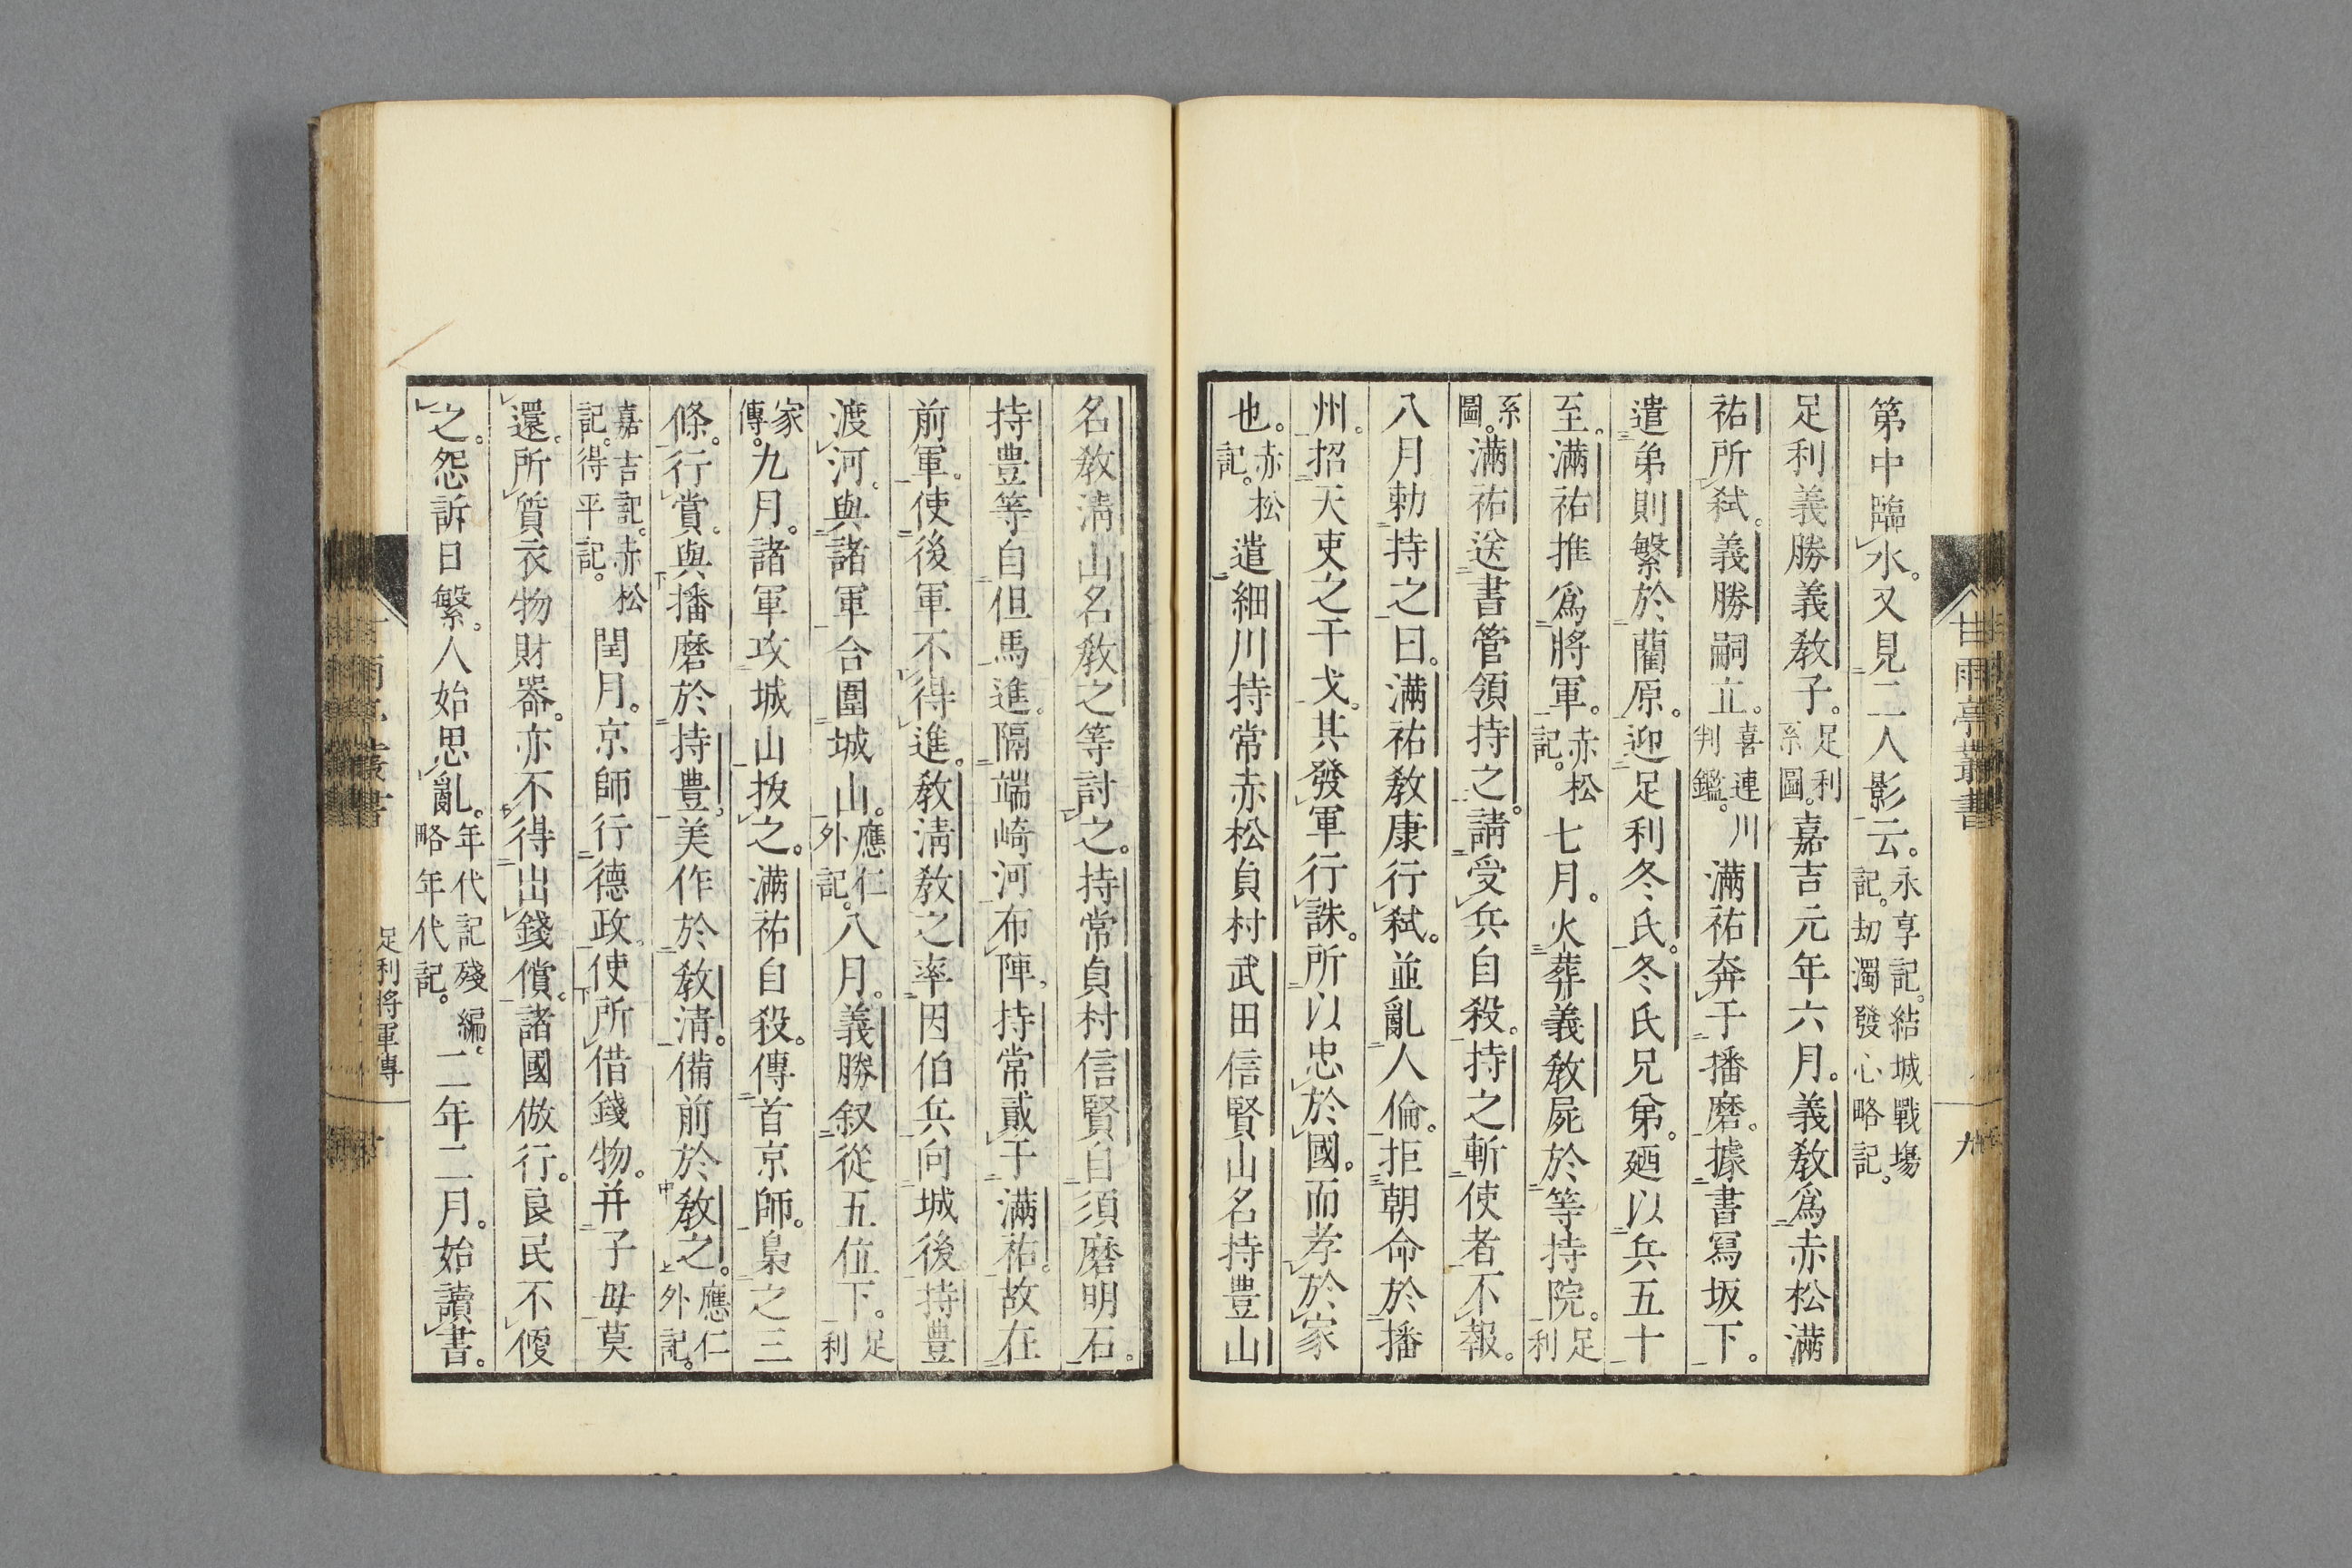 第中臨水。又見二人影云。永享記。結城戰塲記。刧濁發心略記。
足利義勝義教子。足利系圖。嘉吉元年六月。義教爲赤松滿
祐所弑。義勝嗣立。喜連川判鑑。滿祐奔于播磨。據書寫坂下。
遣弟則繁於藺原。迎足利冬氏。冬氏兄弟。廼以兵五十
至。滿祐推爲將軍。赤松記。七月。火葬義教屍於等持院。足利
系圖。滿祐送書管領持之。請受兵自殺。持之斬使者不報。
八月勅持之曰。滿祐教康行弑。並亂人倫。拒朝命於播
州。招天吏之干戈。其發軍行誅。所以忠於國。而孝於家
也。赤松記。遣細川持常赤松貞村武田信賢山名持豊山
名教淸山名教之等討之。持常貞村信賢自須磨明石。
持豊等自但馬進。隔端崎河布陣。持常貳于滿祐。故在
前軍。使後軍不得進。教淸教之率因伯兵向城後。持豊
渡河。與諸軍合圍城山。應仁外記。八月。義勝叙從五位下。足利
家傳。九月。諸軍攻城山拔之。滿祐自殺。傳首京師。梟之三
條。行賞。與播磨於持豊。美作於教淸。備前於教之。應仁外記。
嘉吉記。赤松記。得平記。閏月。京師行德政。使所借錢物。并子母莫
還。所質衣物財器。亦不得出錢償。諸國倣行。良民不便
之。怨訴日繁。人始思亂。年代記殘編、略年代記。二年二月。始讀書。
甘雨亭叢書
九
足利將軍傳